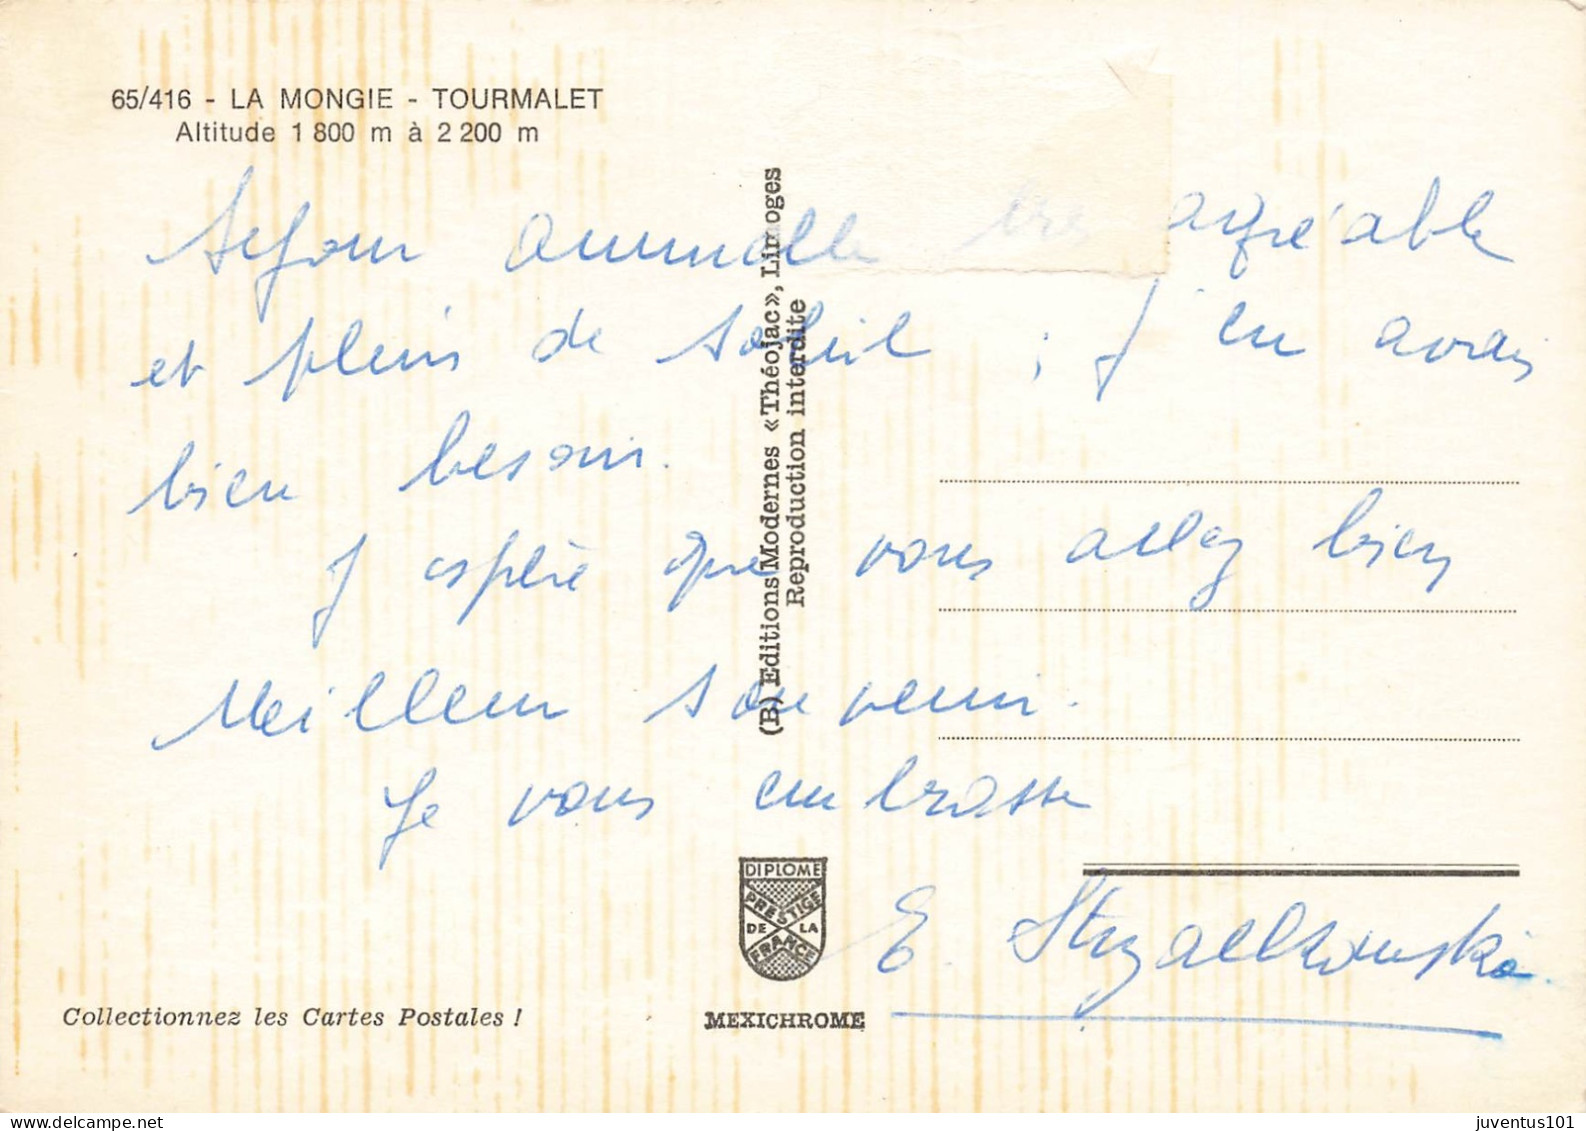 65/416 - LA MONGIE - TOURMALET
Altitude 1 800 m à 2 200 m
Sejour annuelle très agréable
et plein de soleil ; j'en avais
bien besoin.
J espère que vous allez bien
Meilleur souvenir.
Je vous embrasse
E. Strzalkowska
(B) Editions Modernes «Théojac», Limoges
Reproduction interdite
DIPLOME
PRESTIGE
DE LA
FRANCE
Collectionnez les Cartes Postales !
MEXICHROME
https://www.delcampe.net
juventus101